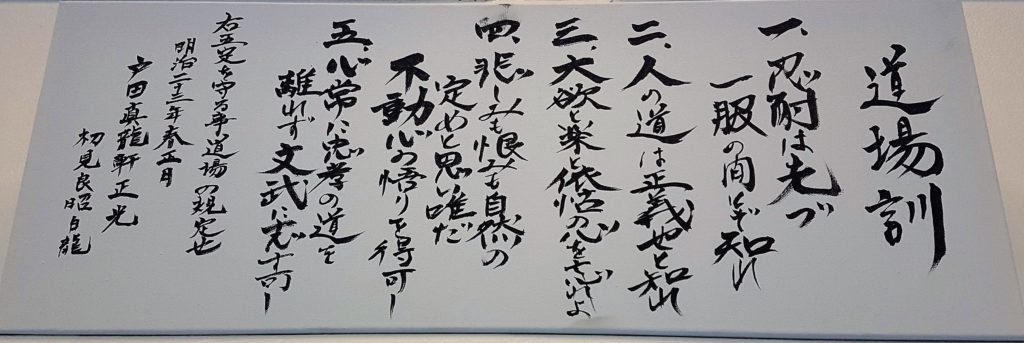 道場訓
一、忍耐は先づ
一服の間ぞと知れ
二、人の道は正義也と知れ
三、大欲と楽と依怙の心を忘れよ
四、悲しみも恨みも自然の
定めと思い唯だ
不動心の悟りを得可し
五、心常に忠孝の道を
離れず文武に志す可し
右五定を守る事道場の規定也
明治二十三年春正月
戸田真龍軒正光
初見良昭白龍